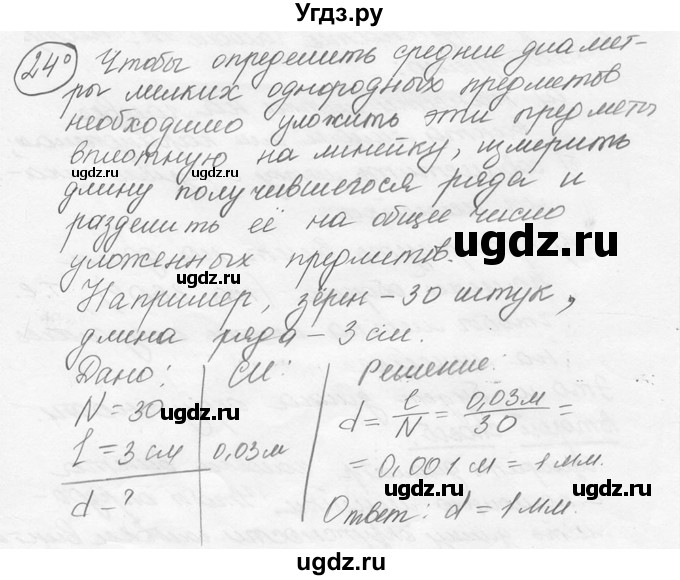 Угдз.ру
24° Чтобы определить средние диамет-
ры мелких однородных предметов
необходимо уложить эти предметы
вплотную на линейку, измерить
длину получившегося ряда и
разделить её на общее число
уложенных предметов.
Например, зёрен – 30 штук,
длина ряда – 3 см.
Дано: СИ: Решение.
N = 30
l = 3 см 0,03 м
d – ?
d = l/N = 0,03 м/30 =
= 0,001 м = 1 мм.
Ответ: d = 1 мм.
ugdz.ru
ugdz.ru
ugdz.ru
ugdz.ru
ugdz.ru
ugdz.ru
ugdz.ru
ugdz.ru
ugdz.ru